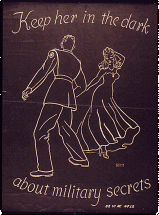 Keep her in the dark
about military secrets